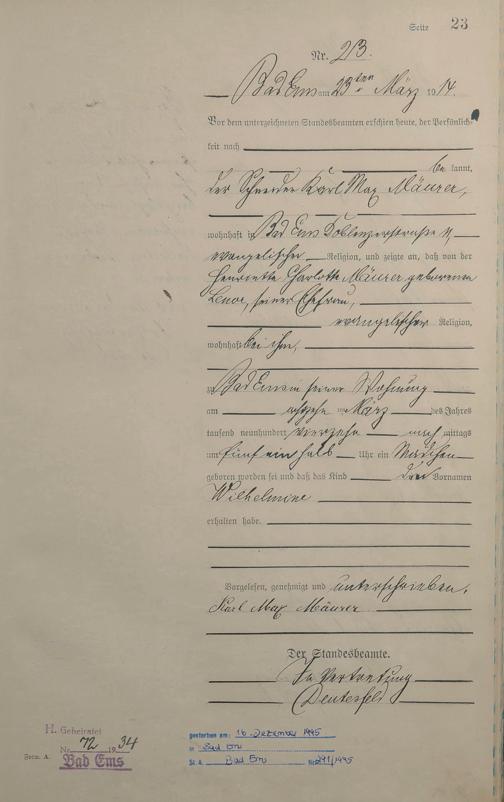 Seite 23
Nr. 23.
Bad Ems am 23ten März 1914.
Vor dem unterzeichneten Standesbeamten erschien heute, der Persönlich-
keit nach
be kannt,
der Schneider Karl Max Mäurer,
wohnhaft in Bad Ems Coblenzerstraße
evangelischer Religion, und zeigte an, daß von der
Henriette Charlotte Mäurer geborenen
seiner Ehefrau,
evangelischer Religion,
wohnhaft bei ihm,
zu Bad Ems in seiner Wohnung
am März des Jahres
tausend neunhundert vierzehn nach mittags
um fünf ein halb Uhr ein Mädchen
geboren worden sei und daß das Kind den Vornamen
Wilhelmine
erhalten habe.
Vorgelesen, genehmigt und unterschrieben.
Karl Max Mäurer
Der Standesbeamte.
In Vertretung
H. Geheiratet
Nr. 72 1934
Bad Ems
Form. A.
gestorben am: 16. Dezember 1995
in Bad Ems
St. A. Bad Ems Nr. 291/1995